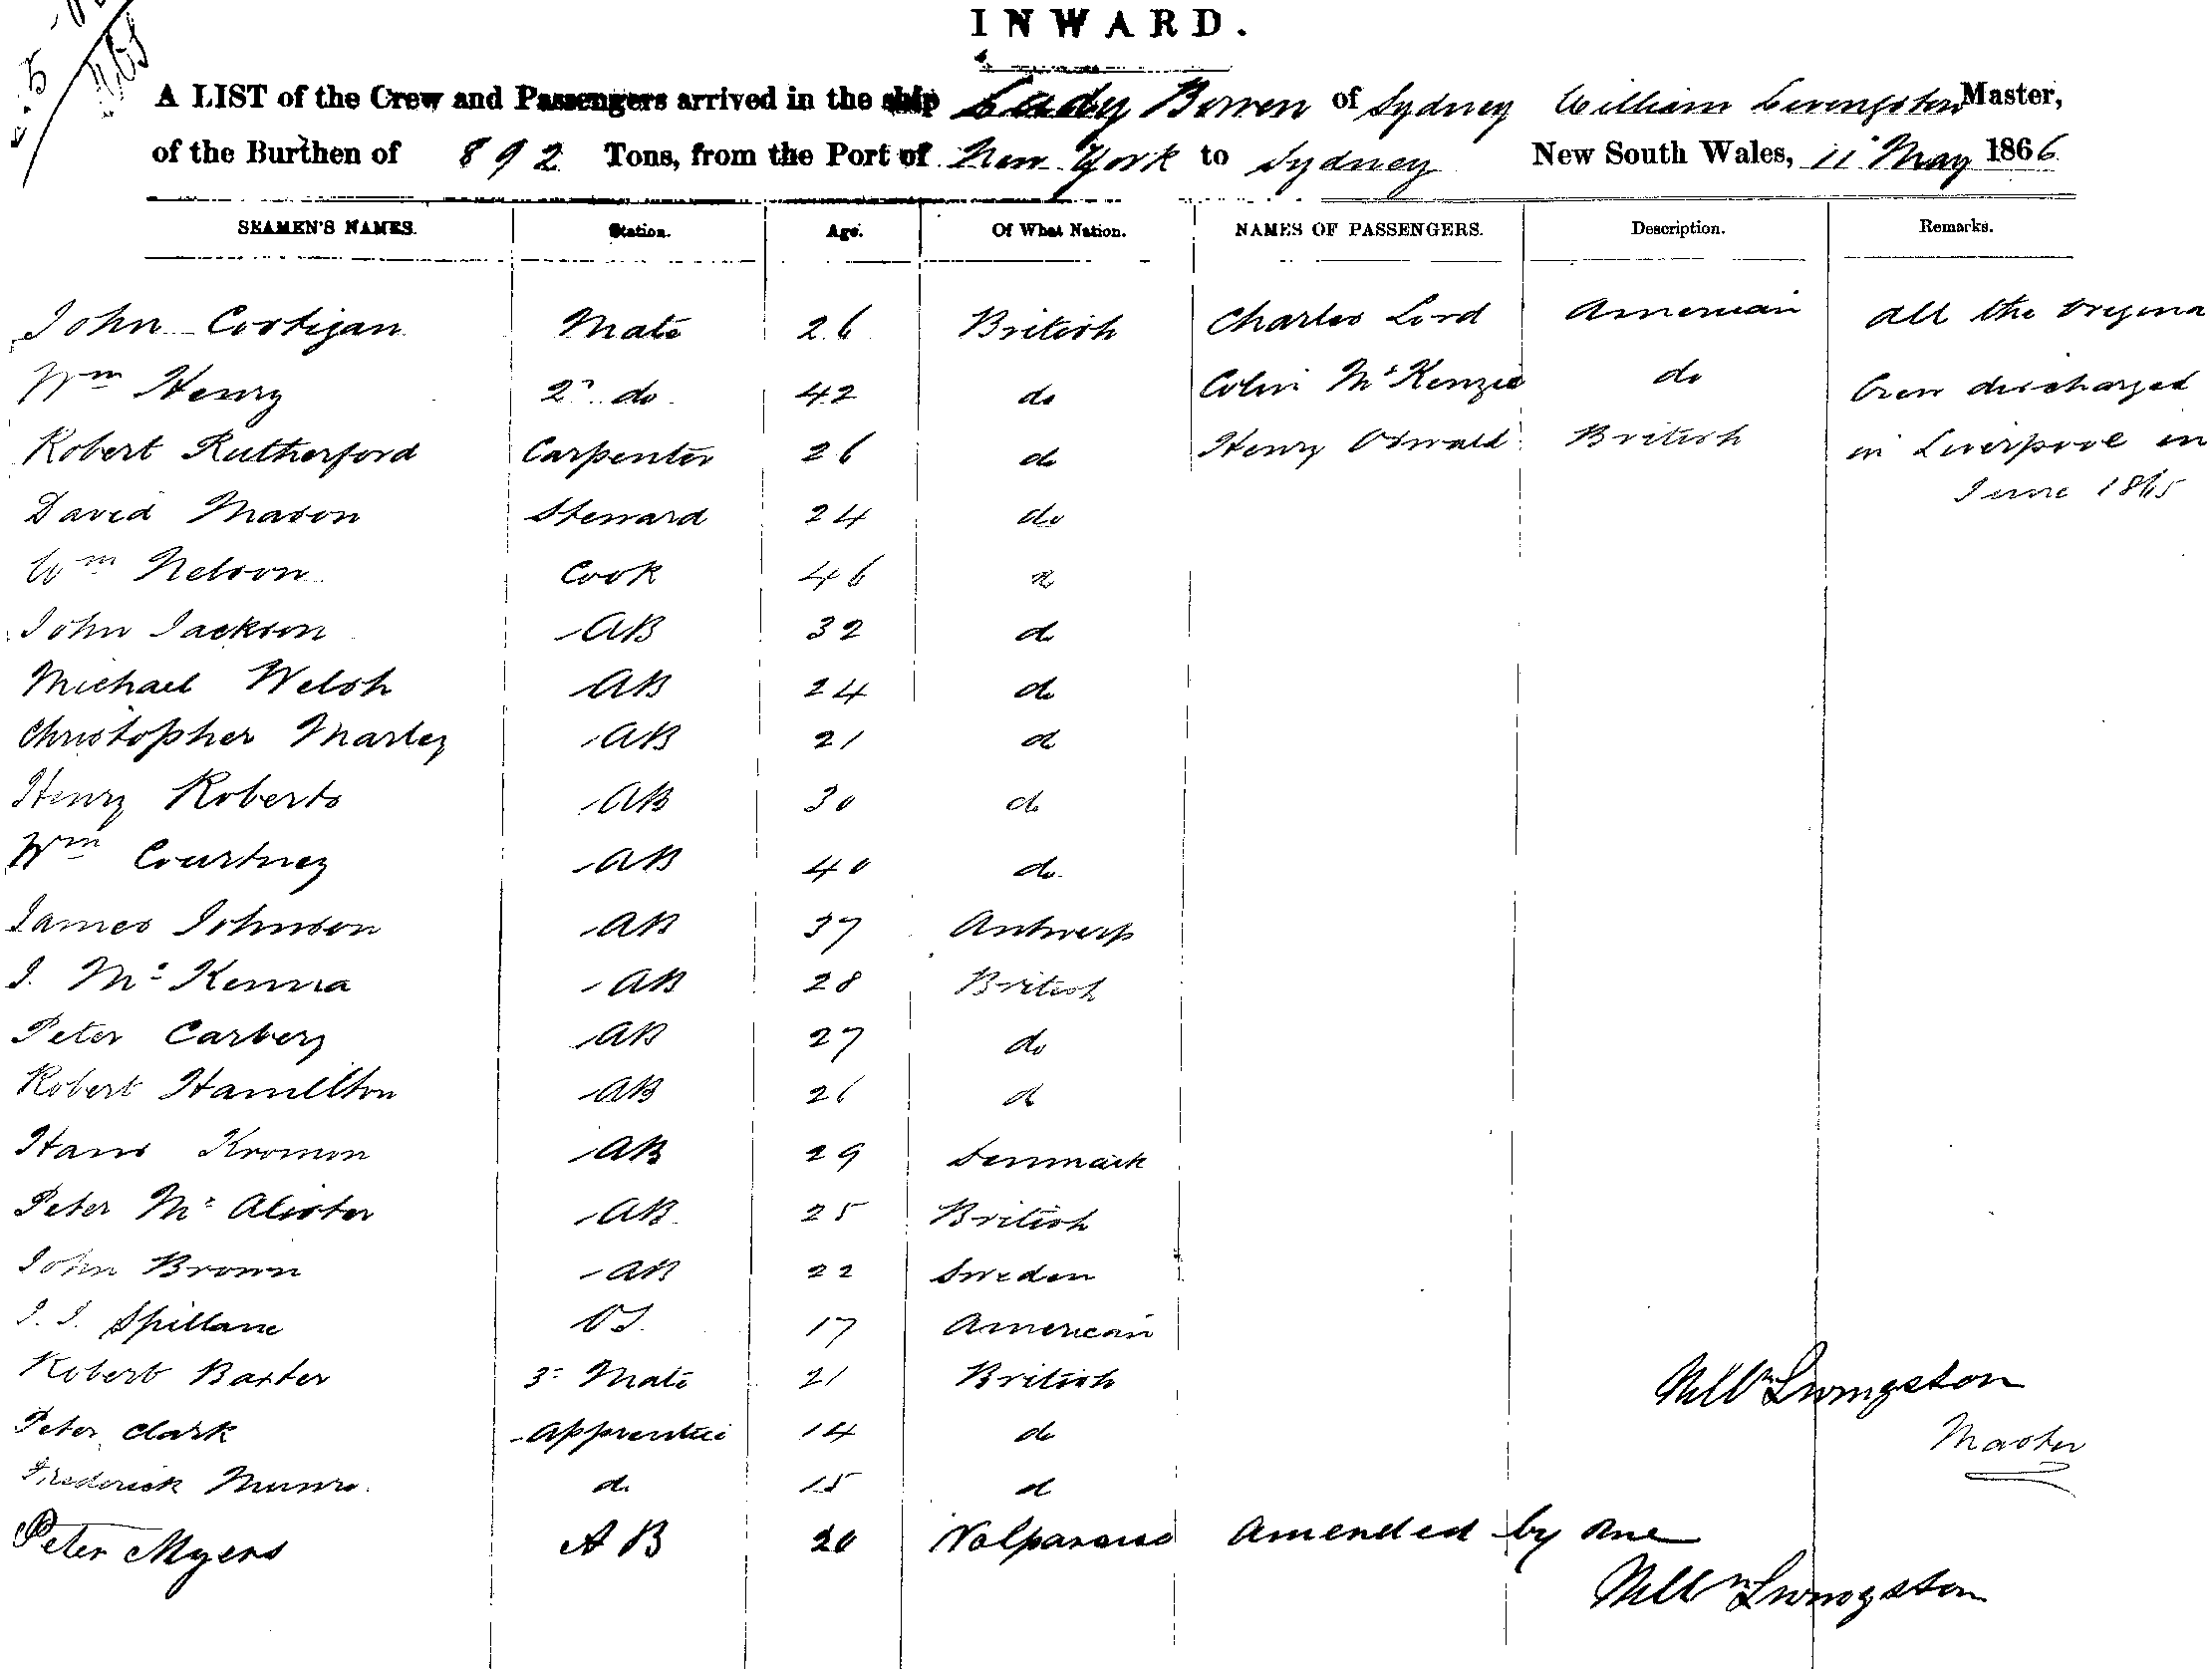 INWARD.
A LIST of the Crew and Passengers arrived in the ship Lady Bowen of Sydney William Livingston Master,
of the Burthen of 892 Tons, from the Port of New York to Sydney New South Wales, 11 May 1866
SEAMEN'S NAMES. Station. Age. Of What Nation. NAMES OF PASSENGERS. Description. Remarks.
John Costigan Mate 26 British Charles Lord American All the origina
Wm Henry 2n do. 42 do Colin Mc Kenzie do Crew discharged
Robert Rutherford Carpenter 26 do Henry Oswald British in Liverpool in
June 1865
David Mason Steward 24 do
Wm Nelson Cook 46 do
John Jackson AB 32 do
Michael Welsh AB 24 do
Christopher Marley AB 21 do
Henry Roberts AB 30 do
Wm Courtney AB 40 do.
James Johnson AB 37 Antwerp
J. Mc Kenna AB 28 British
Peter Carbery AB 27 do
Robert Hamilton AB 26 do
Hans Kromon AB 29 Denmark
Peter Mc Alister AB 25 British
John Brown AB 22 Sweden
J. J. Spillane OS 17 American
Robert Baxter 3 Mate 21 British
Willm Livingston
Master
Peter Clark Apprentice 14 do
Frederick Munro. do 15 do
Peter Myers AB 20 Valparaiso Amended by me
Willm Livingston